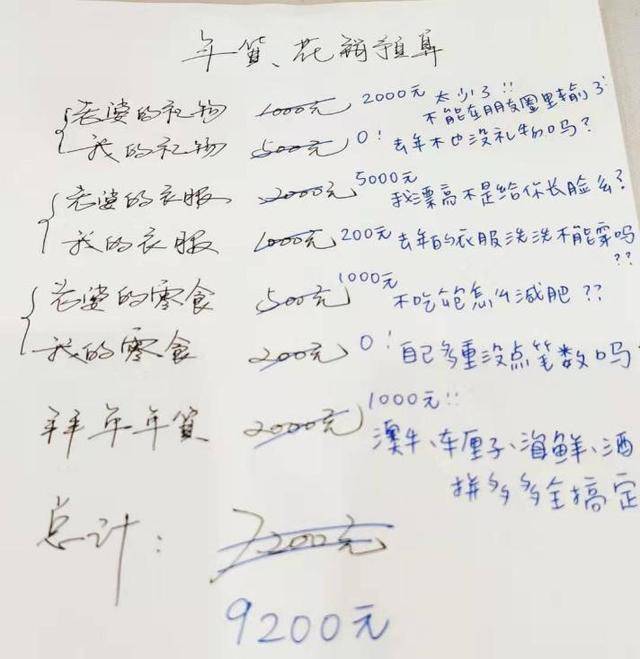 年货、花销预算
老婆的礼物 1000元 2000元 太少了!!
不能在朋友圈里输了!
我的礼物 500元 0! 去年不也没礼物吗?
老婆的衣服 2000元 5000元
我漂亮不是给你长脸么?
我的衣服 1000元 200元 去年的衣服洗洗不能穿吗
??
老婆的零食 500元 1000元
不吃饱怎么减肥??
我的零食 200元 0! 自己多重没点笔数吗
拜年年货 2000元 1000元!!
澳牛、车厘子、海鲜、酒
拼多多全搞定
总计: 7200元
9200元